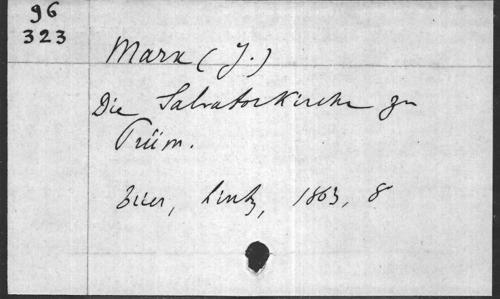 96
323
Marx (J.)
Die Salvatorkirche zu
Prüm.
Trier, Lintz, 1863, 8